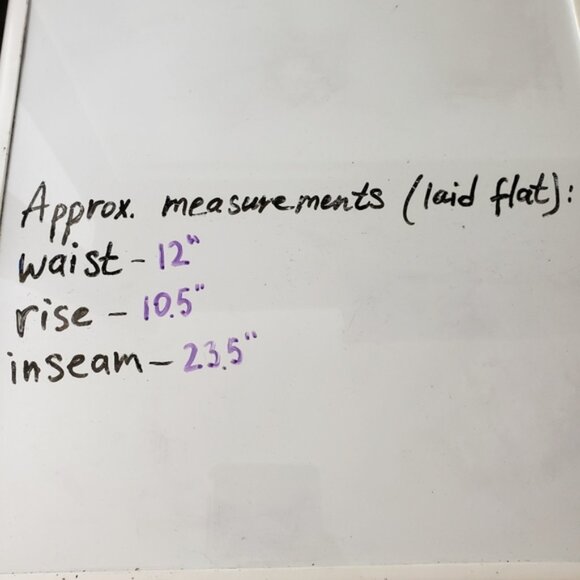 Approx. measurements (laid flat):
waist - 12"
rise - 10.5"
inseam - 23.5"